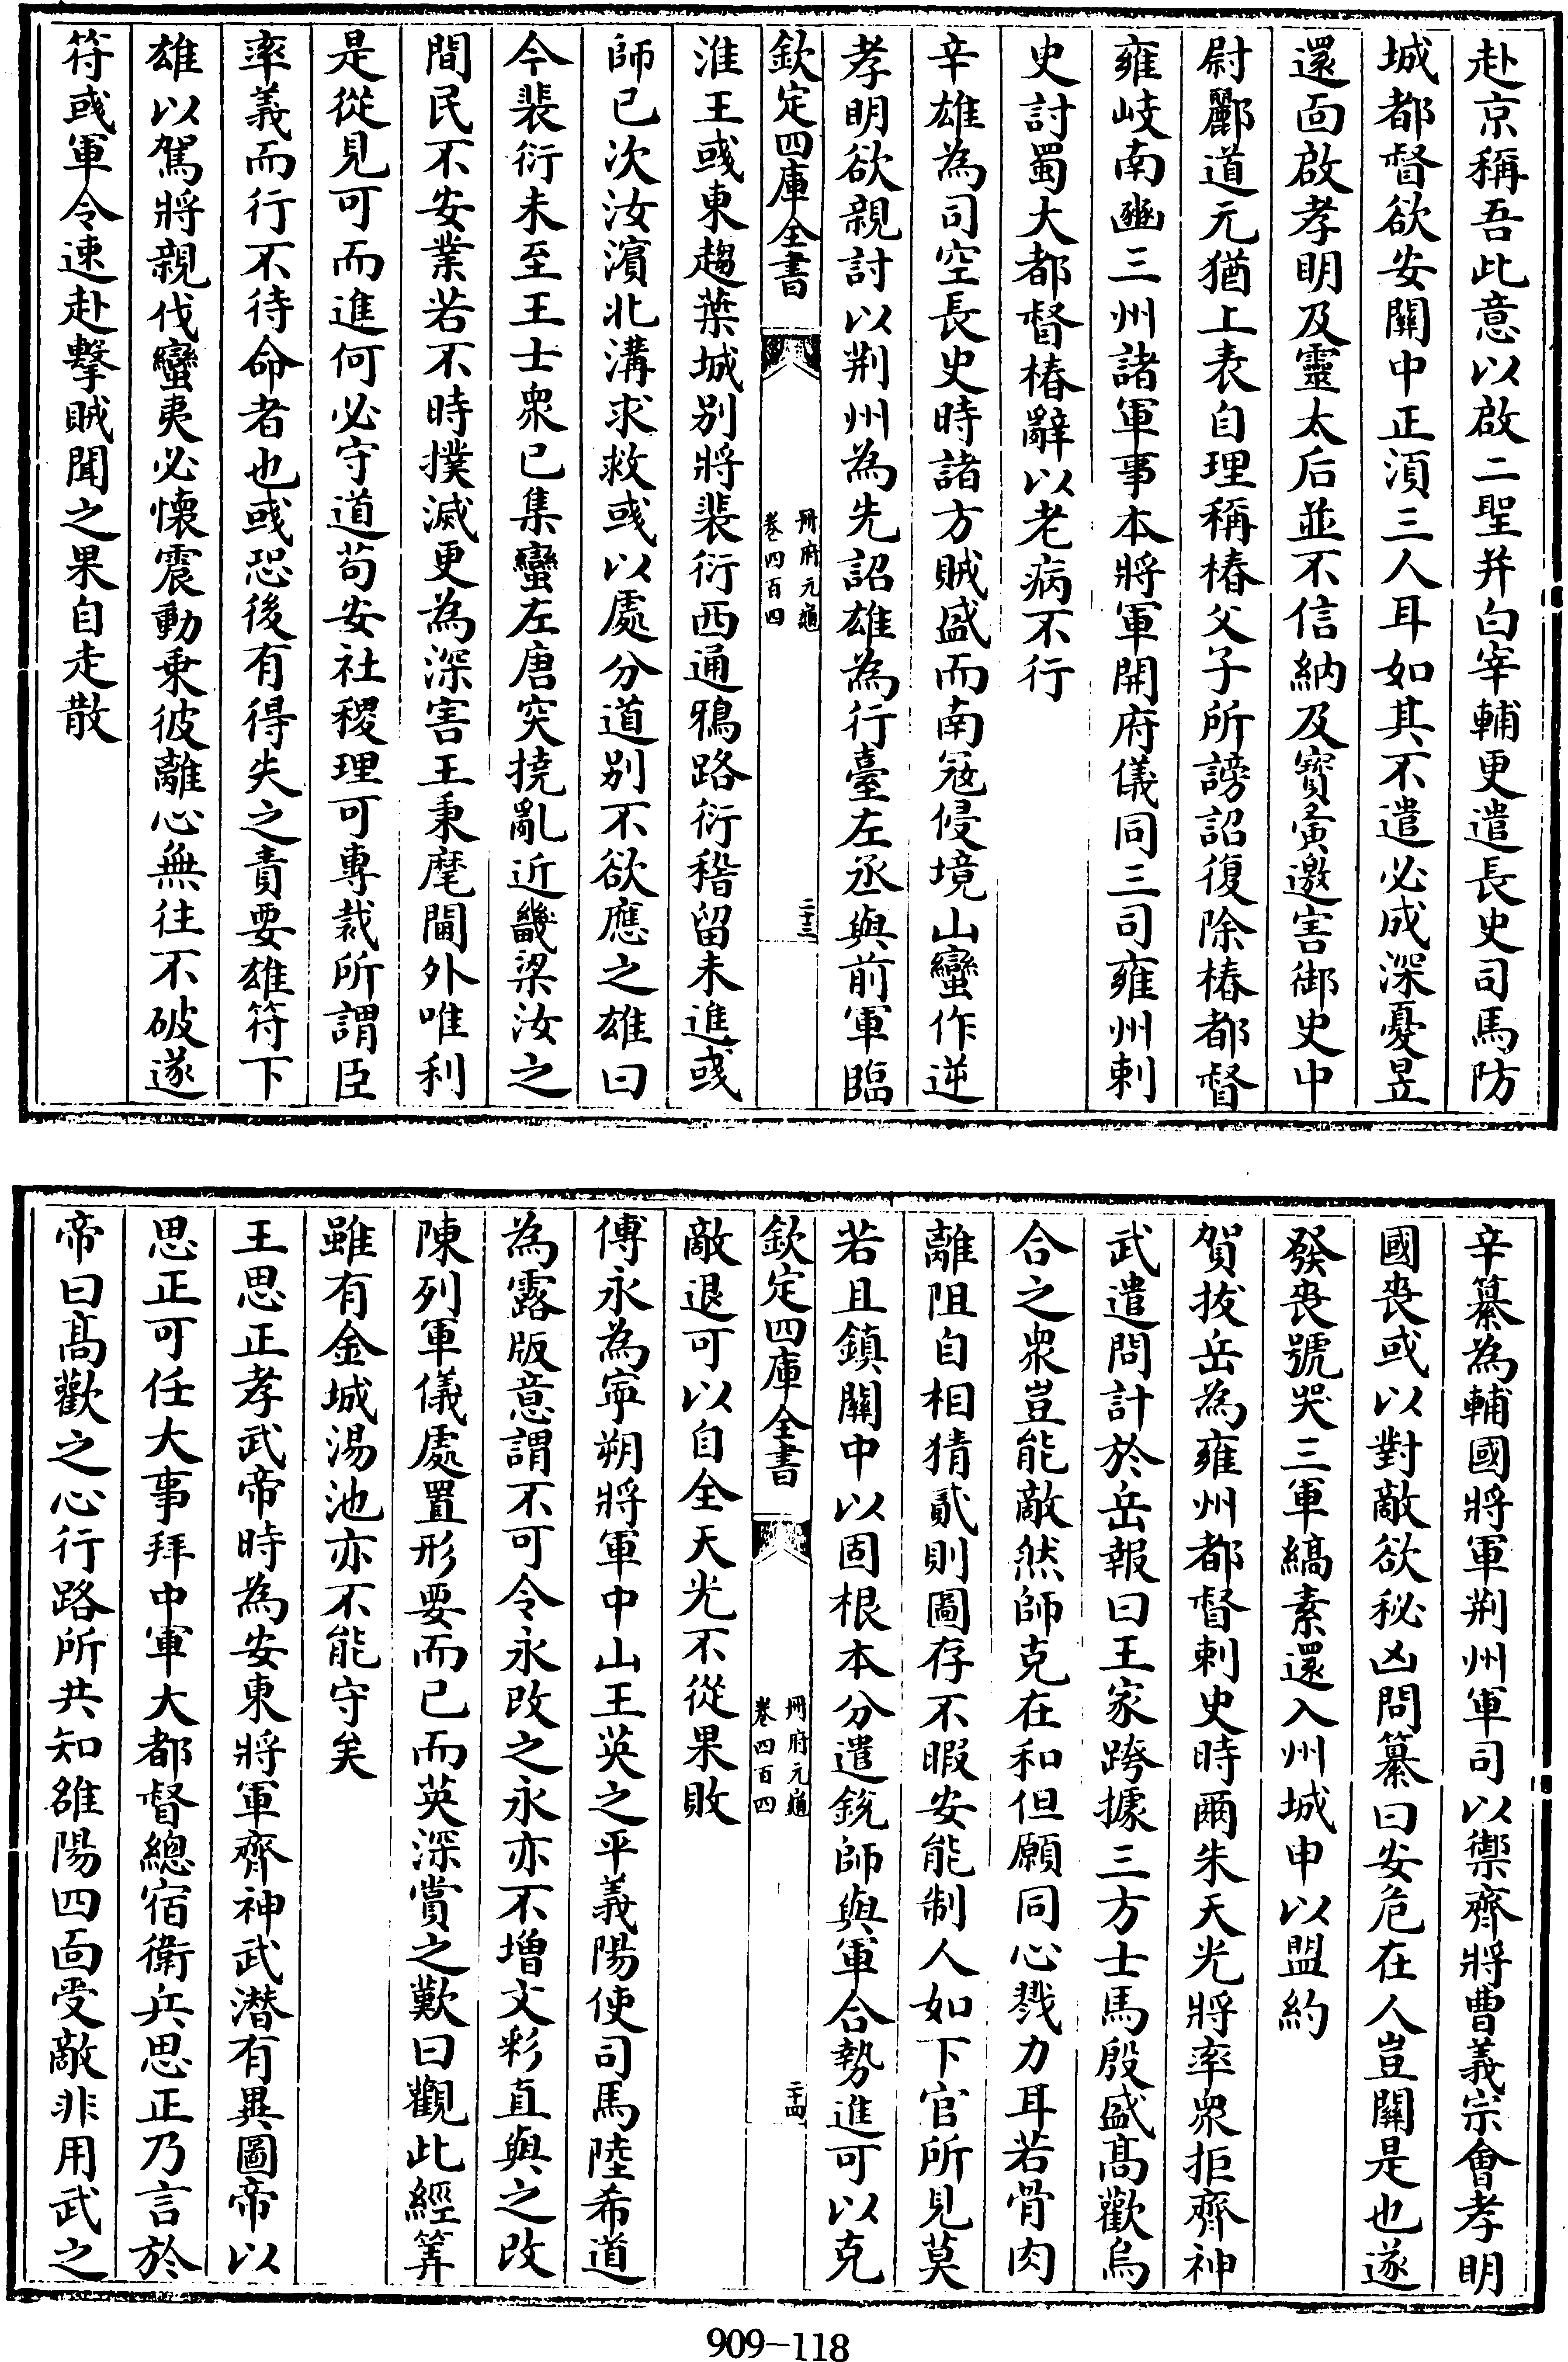 赴京稱吾此意以啟二聖并白宰輔更遣長史司馬防
城都督欲安關中正湏三人耳如其不遣必成深憂昱
還面啟孝明及靈太后並不信納及寳夤邀害御史中
尉酈道元猶上表自理稱椿父子所謗詔復除椿都督
雍岐南豳三州諸軍事本將軍開府儀同三司雍州刺
史討蜀大都督椿辭以老病不行
辛雄為司空長史時諸方賊盛而南冦侵境山蠻作逆
孝明欲親討以荆州為先詔雄為行臺左丞與前軍臨
欽定四庫全書
冊府元龜
卷四百四
二十三
淮王彧東趨葉城别將裴衍西通鴉路衍稽留未進彧
師已次汝濵北溝求救彧以處分道别不欲應之雄曰
今裴衍未至王士衆已集蠻左唐突撓亂近畿梁汝之
間民不安業若不時撲滅更為深害王秉麾閫外唯利
是從見可而進何必守道苟安社稷理可專裁所謂臣
率義而行不待命者也彧恐後有得失之責要雄符下
雄以駕將親伐蠻夷必懷震動乗彼離心無往不破遂
符彧軍令速赴擊賊聞之果自走散
辛纂為輔國將軍荆州軍司以禦齊將曹義宗會孝明
國喪或以對敵欲秘凶問纂曰安危在人豈關是也遂
發喪號哭三軍縞素還入州城申以盟約
賀拔岳為雍州都督刺史時爾朱天光將率衆拒齊神
武遣問計於岳報曰王家跨據三方士馬殷盛髙歡烏
合之衆豈能敵然師克在和但願同心戮力耳若骨肉
離阻自相猜貳則圖存不暇安能制人如下官所見莫
若且鎮關中以固根本分遣鋭師與軍合勢進可以克
欽定四庫全書
冊府元龜
卷四百四
二十四
敵退可以自全天光不從果敗
傅永為寜朔將軍中山王英之平義陽使司馬陸希道
為露版意謂不可令永改之永亦不增文彩直與之改
陳列軍儀處置形要而已而英深賞之歎曰觀此經筭
雖有金城湯池亦不能守矣
王思正孝武帝時為安東將軍齊神武潜有異圖帝以
思正可任大事拜中軍大都督總宿衛兵思正乃言於
帝曰髙歡之心行路所共知雒陽四面受敵非用武之
909-118